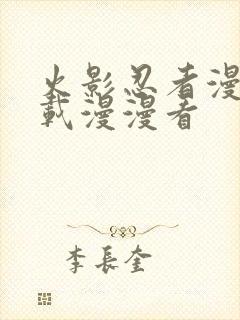 火影忍者漫
载漫漫看
李長奎